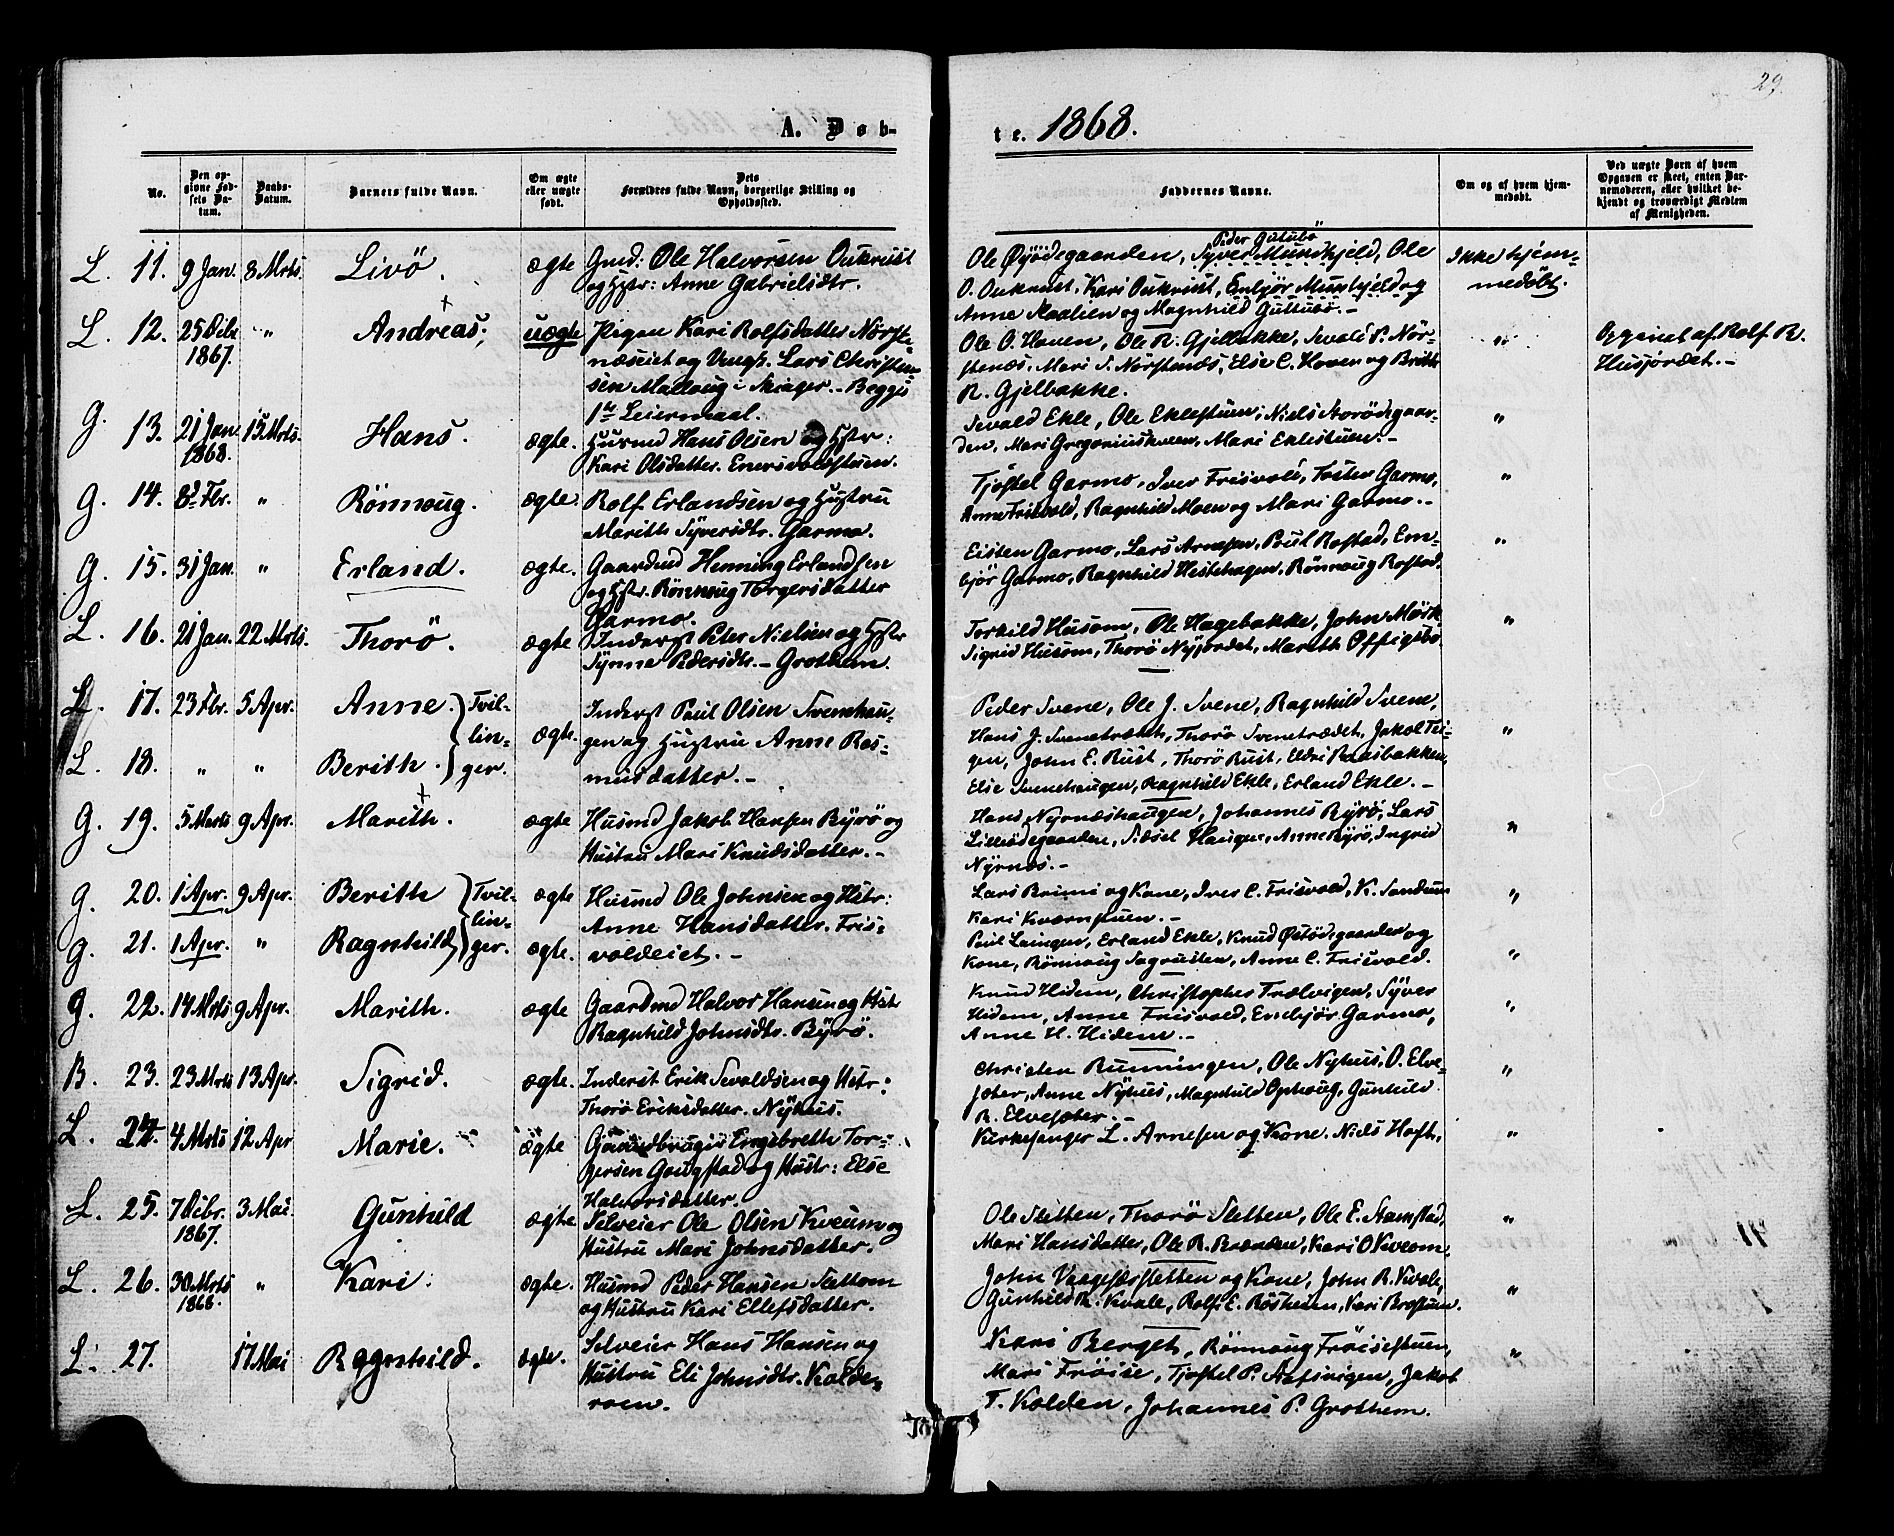 29.
A. Døb-
te. 1868.
No.
Den op-
givne Fød-
sels Da-
tum.
Daabs-
Datum.
Barnets fulde Navn.
Om ægte
eller uægte
født.
Dets
Forældres fulde Navn, borgerlige Stilling og
Opholdssted.
Faddernes Navne.
Om og af hvem hjem-
medøbt.
Ved uægte Barn af hvem
Opgaven er skeet, enten Bar-
nemoderen, eller hvilket be-
kjendt og troværdigt Medlem
af Menigheden.
L. 11. 9 Jan. 8 Mrts. Livö. ægte
Gmd: Ole Halvorsen Oukrust
og Hstr: Anne Gabrielsdtr.
Peder Guttubö
Ole Øyödegaarden, Syver Munkhjeld, Ole
O. Oukrust, Kari Oukrust, Embjör Munkhjeld og
Anne Staalien og Magnhild Guttubö. –
Ikke hjem-
medøbt.
L. 12. 25 Dcbr 1867. " Andreas; uægte
Pigen Kari Rolfsdatter Nörste-
næseiet og Ungk. Lars Christen-
sen Maelaug i Skiager. – Begges
1ste Leiermaal.
Ole O. Hoven, Ole R. Gjelbakke, Sevald P. Nör-
stenæs, Mari S. Nörstenæs, Else C. Hoven og Brith
R. Gjelbakke.
"
Opgivet af Rolf R.
Husjordet. –
G. 13. 21 Jan. 1868. 15 Mrts. Hans. ægte.
Husmd Hans Olsen og Hstr:
Kari Olsdatter. Enersvoldstuen.
Sevald Ekle, Ole Eklestuen, Niels Storödegaar-
den, Mari Gregoriuskveen, Mari Eklestuen. –
"
G. 14. 8d Fbr. " Rönnaug. ægte.
Rolf Erlandsen og Hustru
Marith Syversdtr. Garmo.
Tjostel Garmo, Iver Frisvold, Tosten Garmo,
Anne Frisvold, Ragnhild Moen og Mari Garmo. –
"
G. 15. 31 Jan. " Erland. ægte.
Gaardmd Henning Erlandsen
og Hstr. Rönnaug Torgersdatter
Garmo.
Eisten Garmo, Lars Arnesen, Poul Rostad, Em-
björ Garmo, Ragnhild Hestehagen, Rönnaug Rostad.
"
L. 16. 21 Jan. 22 Mrts. Thorö. ægte
Inderst Peter Nielsen og Hstr
Synne Pedersdtr. – Grothem.
Torkild Husom, Ole Hagebakke, John Mörk
Sigrid Husom, Thorö Nyjordet, Marith Offigsbö.
"
L. 17. 23 Fbr. 5 Apr. Anne. Tvil-
lin-
ger. ægte.
L. 18. " " Berith.
Inderst Poul Olsen Svenehau-
gen og Hustru Anne Ras-
musdatter. –
Peder Svene, Ole J. Svene, Ragnhild Svene,
Hans J. Svenetrædet, Thorö Svenetrædet, Jakob Tei-
gen, John E. Rust, Thorö Rust, Eldri Raasbakken,
Else Svenehaugen, Ragnhild Ekle, Erland Ekle. –
"
G. 19. 5 Marts 9 Apr. Marith. ægte
Husmd Jakob Hansen Byrö og
Hustru Mari Knudsdatter. –
Hans Nyrnæshaugen, Johannes Byrö, Lars
Lilleödegaarden, Sidsel Haugen, Anne Byrö, Ingrid
Nyrnæs. –
"
G. 20. 1 Apr. 9 Apr. Berith Tvil-
lin-
ger. ægte
Husmd Ole Johnsen og Hstr:
Anne Hansdatter. Fris-
voldeiet. –
Lars Brimi og Kone, Iver C. Frisvold, K. Sandum
Kari Kværnstuen. –
"
G. 21. 1 Apr. " Ragnhild ægte.
Poul Luingen, Erland Ekle, Knud Østödegaarden og
Kone, Rönnaug Sagrusten, Anne C. Frisvold.
"
G. 22. 14 Mrts 9 Apr. Marith. ægte
Gaardmd Halvor Hansen og Hstr
Ragnhild Johnsdtr. Byrö.
Knud Hidem, Christopher Trælvigen, Syver
Hidem, Anne Frisvold, Embjör Garmo,
Anne H. Hidem. –
"
B. 23. 23 Mrts 13 Apr. Sigrid. ægte.
Inderst Erik Sevaldsen og Hstr:
Thorö Eriksdatter. Nyhus.
Christen Runningen, Ole Nyhus, O. Elve-
sæter, Anne Nyhus, Magnhild Ophaug, Gunhild
R. Elvesæter. –
"
L. 24. 4 Mrts 12 Apr Marie. ægte
Gaardbruger Engebreth Tor-
gersen Gaugstad og Hustr: Else
Halvorsdatter.
Kirkesanger L. Arnesen og Kone. Niels Hoft,
"
L. 25. 7 Dcbr. 1867. 3 Mai. Gunhild ægte
Selveier Ole Olsen Kveum og
Hustru Mari Johnsdatter.
Ole Sletten, Thorö Sletten, Ole E. Stamstad,
Mari Hansdatter, Ole R. Brænden, Kari O Kveom.
"
L. 26. 30 Mrts 1868. " Kari. ægte.
Husmd Peder Hansen Slettom
og Hustru Kari Ellefsdatter.
John Vaagesærsletten og Kone, John R. Kvale,
Gunhild R. Kvale, Rolf E. Rösheim, Kari Brostuen.
"
L. 27. 17 Mai Ragnhild. ægte.
Selveier Hans Hansen og
Hustru Eli Johnsdtr. Kolde-
roen.
Kari Berget, Rönnaug Fröisestuen,
Mari Fröise, Tjostel P. Aasvigen, Jakob
T. Kolden, Johannes P. Grothem.
"